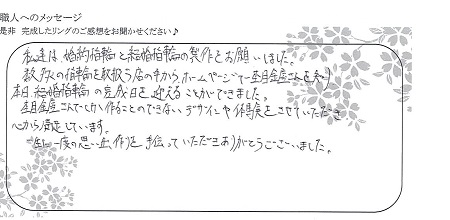 職人へのメッセージ
是非 完成したリングのご感想をお聞かせください♪
私達は、婚約指輪と結婚指輪の製作をお願いしました。
数多くの指輪を取扱う店の中から、ホームページで杢目金屋さんを知り
本日、結婚指輪の完成日を迎えることができました。
杢目金屋さんでしか作ることのできないデザインや体験をさせていただき
心から満足しています。
一生に一度の思い出作りを手伝っていただきありがとうございました。